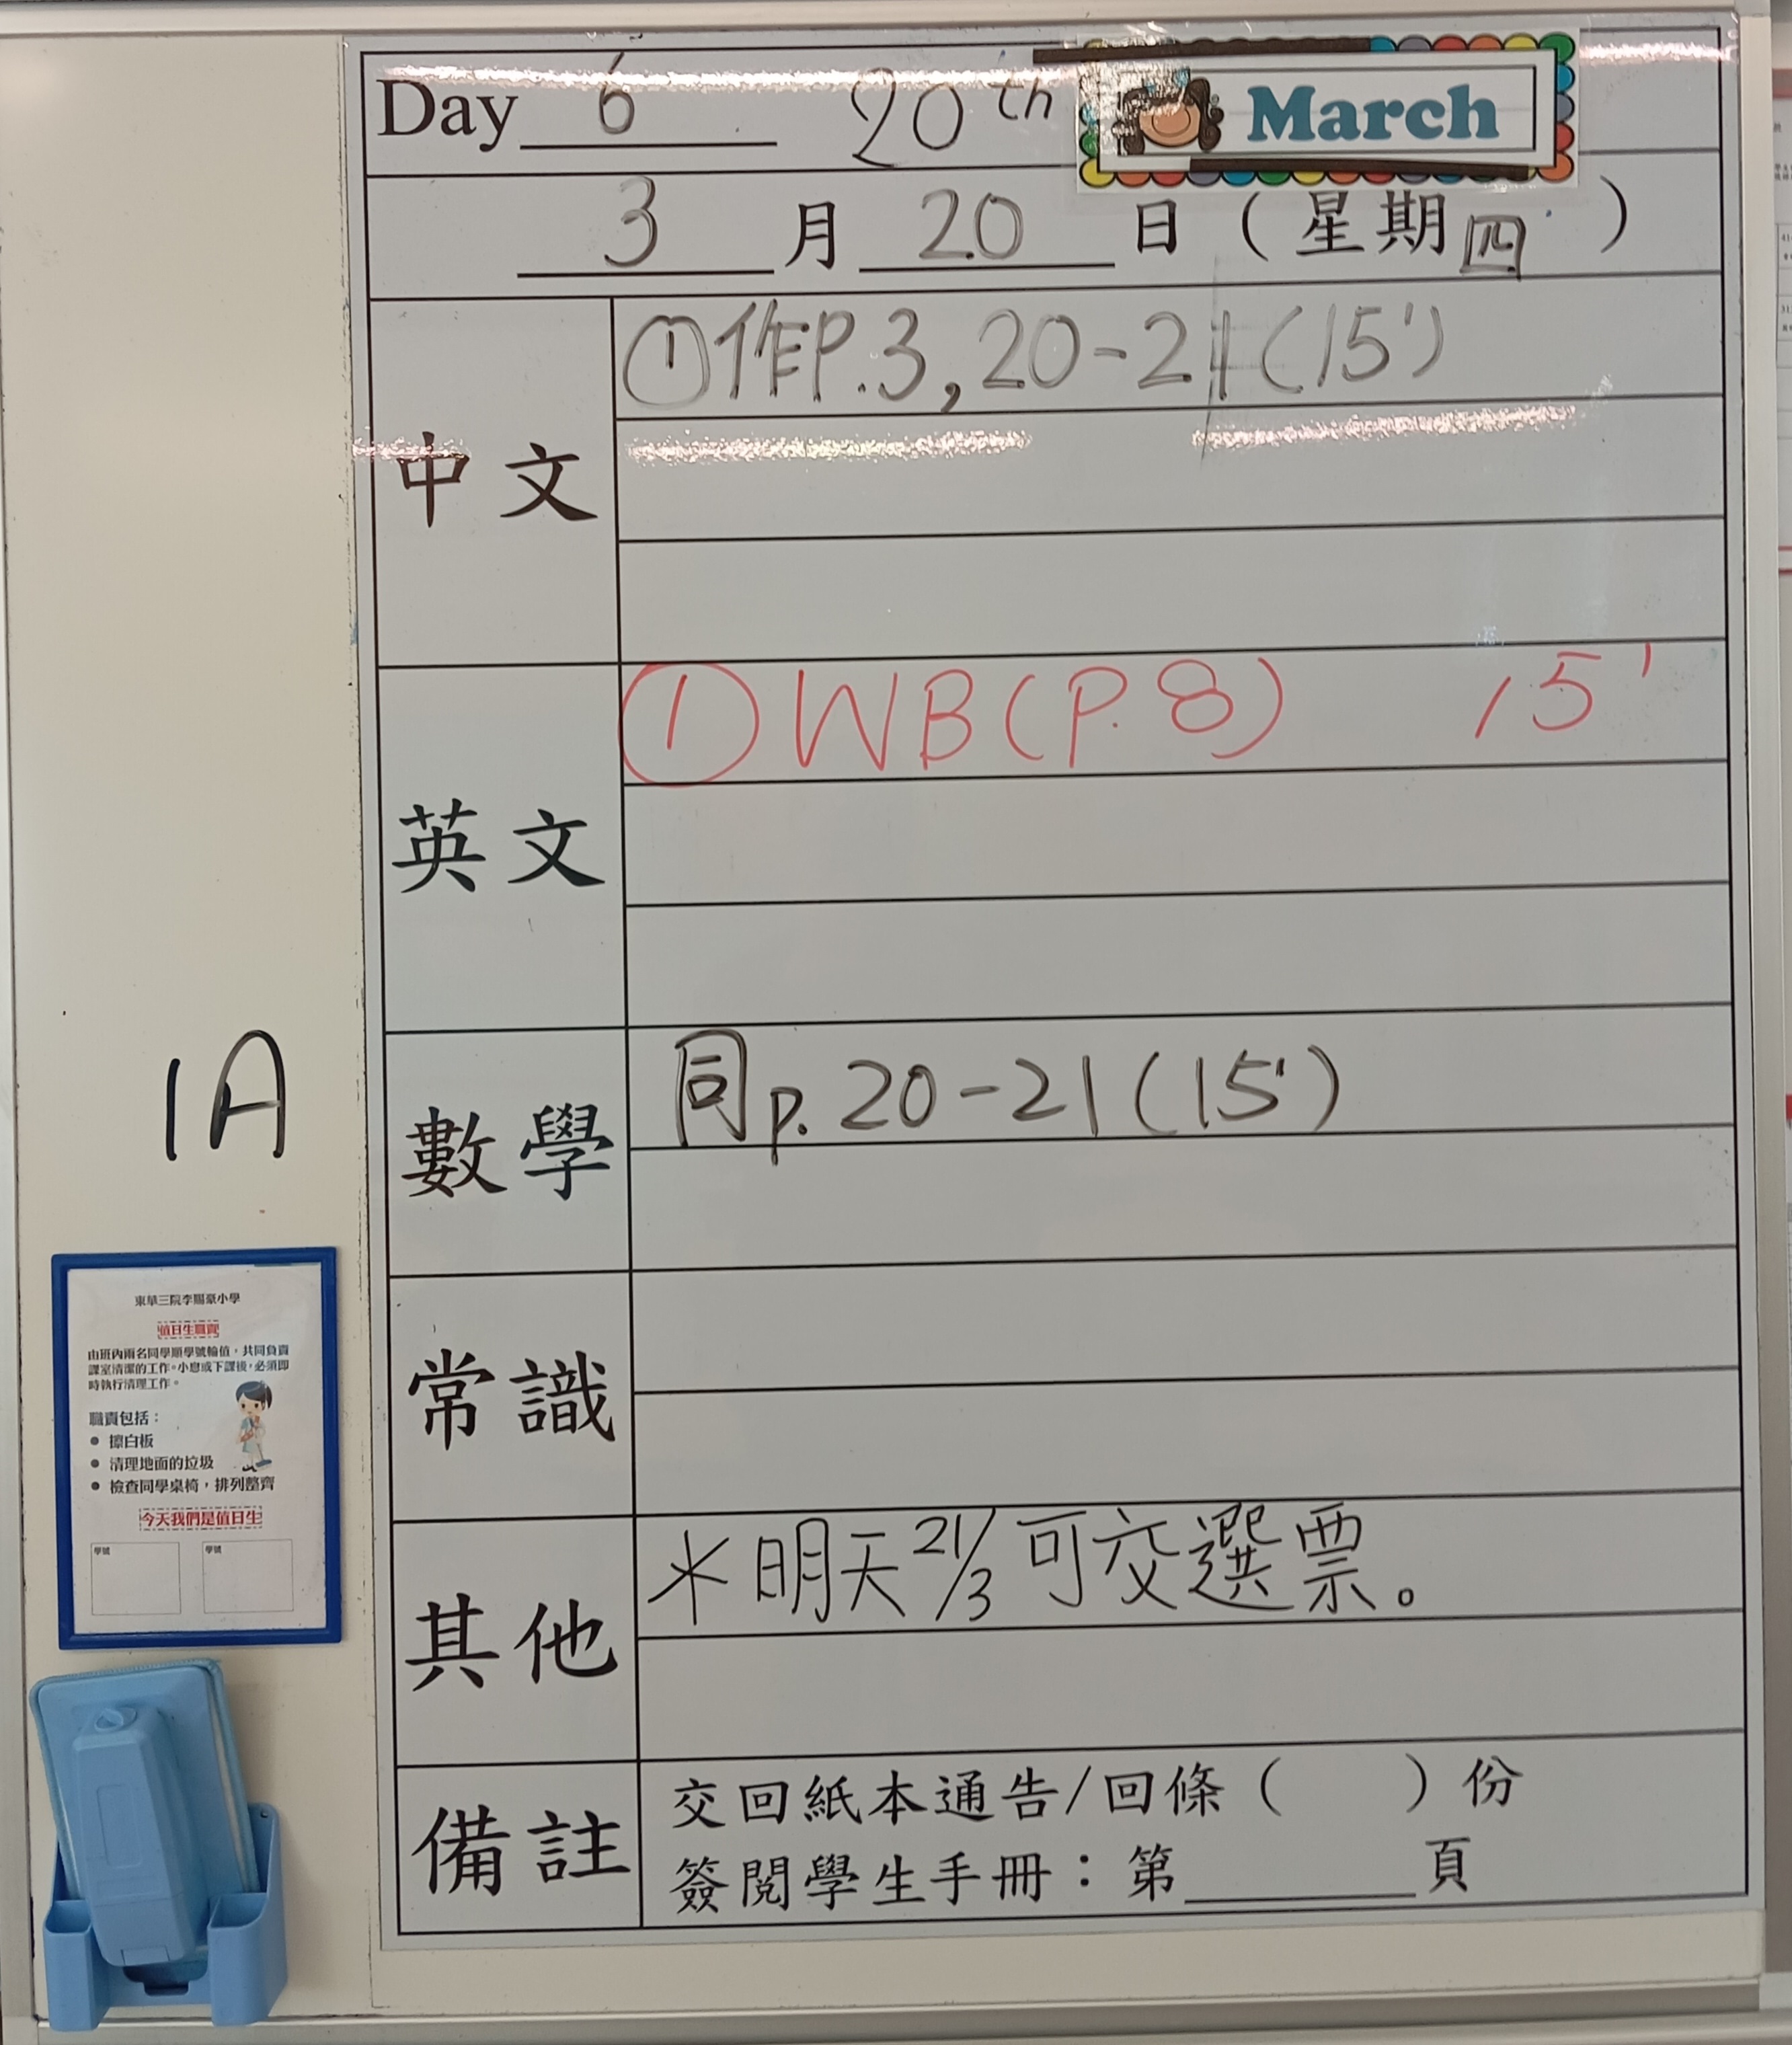 Day 6 20th March
3 月 20 日（星期四）
中文
①作P.3,20-21(15')
英文
①WB(P.8) 15'
數學
同p.20-21(15')
常識
其他
＊明天21/3可交選票。
備註
交回紙本通告/回條（ ）份
簽閱學生手冊：第______頁
1A
東華三院李賜豪小學
值日生職責
由班內兩名同學順學號輪值，共同負責
課室清潔的工作。小息或下課後，必須即
時執行清理工作。
職責包括：
● 擦白板
● 清理地面的垃圾
● 檢查同學桌椅，排列整齊
今天我們是值日生
學號 學號